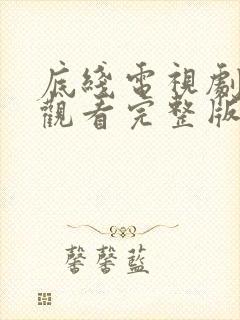 底綫電視劇
觀看完整版
馨馨藍